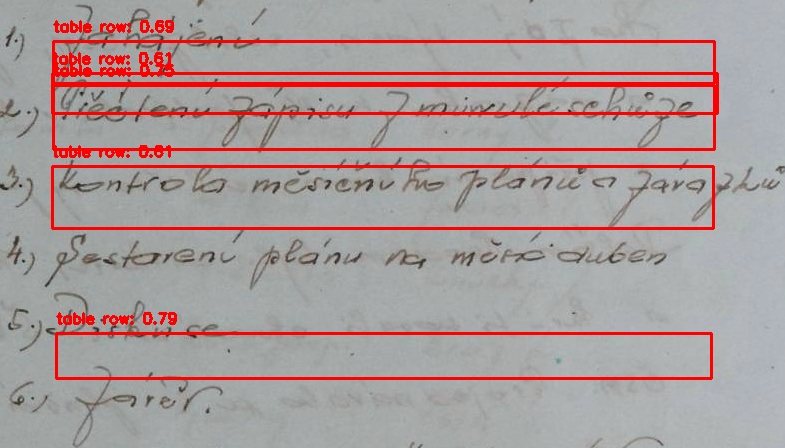 table row: 0.69
1.) Zahájení
table row: 0.61
table row: 0.75
2.) Přečtení zápisu z minulé schůze
table row: 0.61
3.) Kontrola měsíčního plánu a závazků
4.) Sestavení plánu na měsíc duben
table row: 0.79
5.) Diskuse
6.) Závěr.